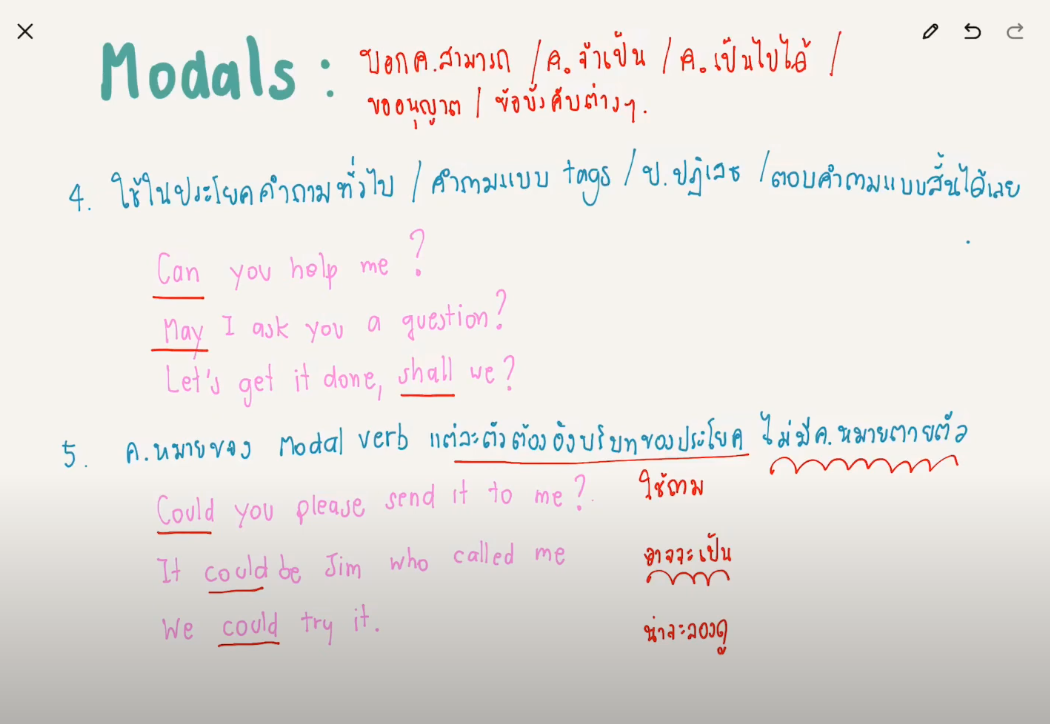 Modals : บอกค.สามารถ / ค.จำเป็น / ค.เป็นไปได้ /
ขออนุญาต / ข้อบังคับต่างๆ.
4. ใช้ในประโยคคำถามทั่วไป / คำถามแบบ tags / ป.ปฏิเสธ / ตอบคำถามแบบสั้นได้เลย
Can you help me ?
May I ask you a question?
Let's get it done, shall we?
5. ค.หมายของ Modal verb แต่ละตัวต้องอิงบริบทของประโยค ไม่มีค.หมายตายตัว
Could you please send it to me ? ใช้ถาม
It could be Jim who called me อาจจะเป็น
We could try it. น่าจะลองดู